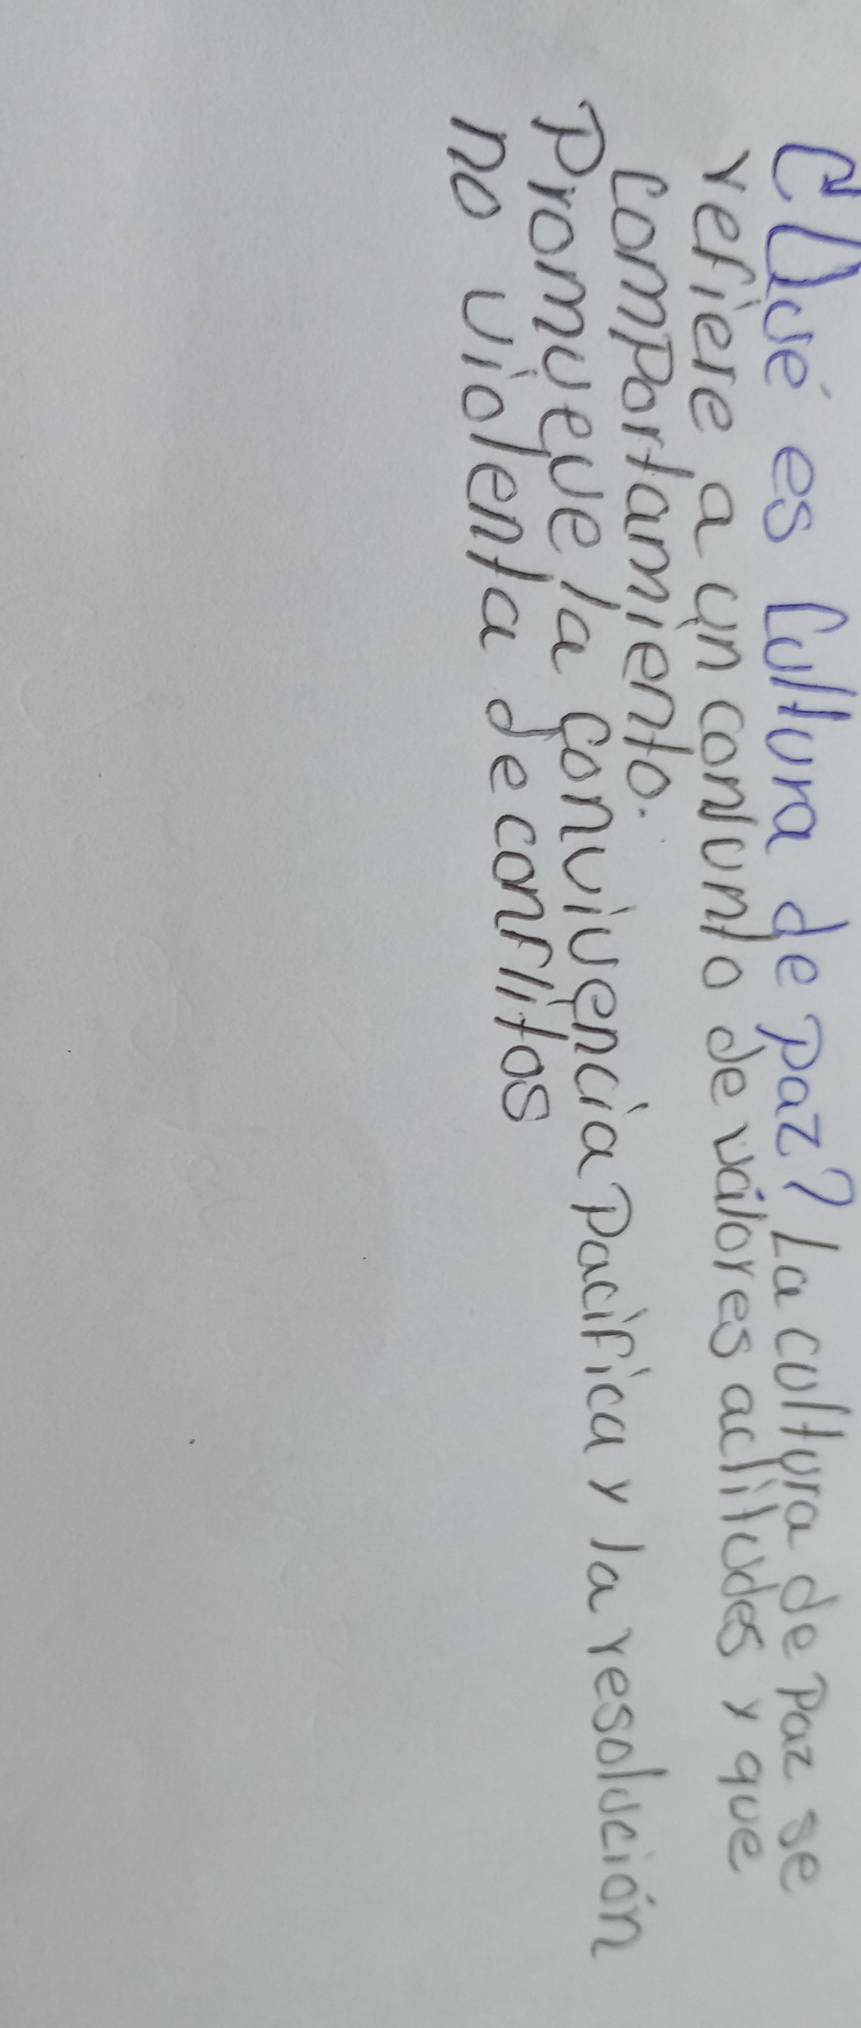 ¿Qué es Cultura de paz? La cultura de Paz se
refiere a un conjunto de valores actitudes y que
comportamiento.
Promueve la convivencia Pacífica y la resolución
no violenta de conflitos